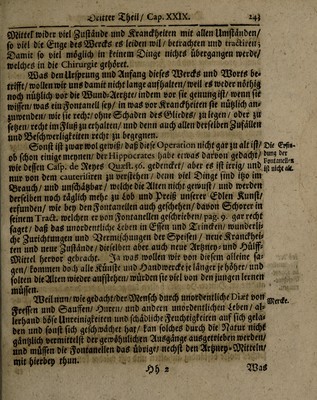 Dritter Theil / Cap. XXIX. 243
Mittel wider viel Zustände und Kranckheiten mit allen Umständen /
so viel die Enge des Wercks es leiden wil / betrachten und tractiren;
Damit so viel möglich in keinem Dinge nichts übergangen werde /
welches in die Chirurgie gehöret.
Was den Ursprung und Anfang dieses Wercks und Worts be-
trifft / wollen wir uns damit nicht lange auffhalten / weil es weder nöthig
noch nützlich vor die Wund-Aertzte / indem vor sie genung ist / wenn sie
wissen / was ein Fontanell sey / in was vor Kranckheiten sie nützlich an-
zuwenden / wie sie recht / ohne Schaden des Gliedes / zu legen / oder zu
setzen / recht im Fluß zu erhalten / und denn auch allen derselben Zufällen
und Beschwerligkeiten recht zu begegnen.
Sonst ist zwar wol gewiß / daß diese Operation nicht gar zu alt ist /
ob schon einige meynen / der Hippocrates habe etwas davon gedacht /
wie dessen Casp. de Reyes Quæst. 96. gedencket / aber es ist irrig / und
nur von dem cauterisiren zu verstehen / denn viel Dinge sind itzo im
Brauch / und unschätzbar / welche die Alten nicht gewust / und werden
derselben noch täglich mehr zu Lob und Preiß unserer Edlen Kunst
erfunden / wie bey den Fontanellen auch geschehen / davon Schorer in
seinem Tract. welchen er von Fontanellen geschrieben / pag. 9. gar recht
saget / daß das unordentliche Leben in Essen und Trincken / wunderliche
Zurichtungen und Vermischungen der Speisen / neue Kranckhei-
ten und neue Zustände / dieselben aber auch neue Artzney- und Hülffs-
Mittel hervor gebracht. Ja was wollen wir von diesem alleine sa-
gen / kommen doch alle Künste und Handwercke je länger je höher / und
solten die Alten wieder aufstehen / würden sie viel von den jungen lernen
müssen.
Die Erfin-
dung der
Fontanellen
ist nicht alt.
Weil nun / wie gedacht / der Mensch durch unordentliche Diæt von
Fressen und Sauffen / Huren / und andern unordentlichen Leben / al-
lerhand böse Unreinigkeiten und schädliche Feuchtigkeiten auf sich gela-
den und sonst sich geschwächet hat / kan solches durch die Natur nicht
gäntzlich vermittelst der gewöhnlichen Ausgänge ausgetrieben werden /
und müssen die Fontanellen das übrige / nechst den Artzney-Mitteln /
mit hierbey thun.
Mercke.
Hh 2 Was